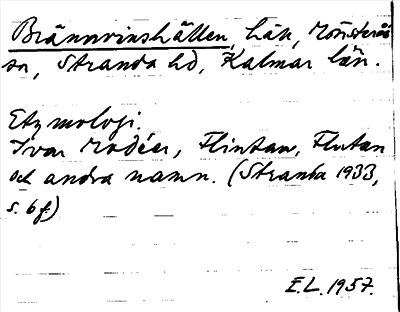 Brännvinshällen, häll, Mönsterås
sn, Stranda hd, Kalmar län.
Etymologi.
Ivar Modéer, Flintan, Flutan
och andra namn. (Stranda 1933,
s. 6 f.)
E.L. 1957.